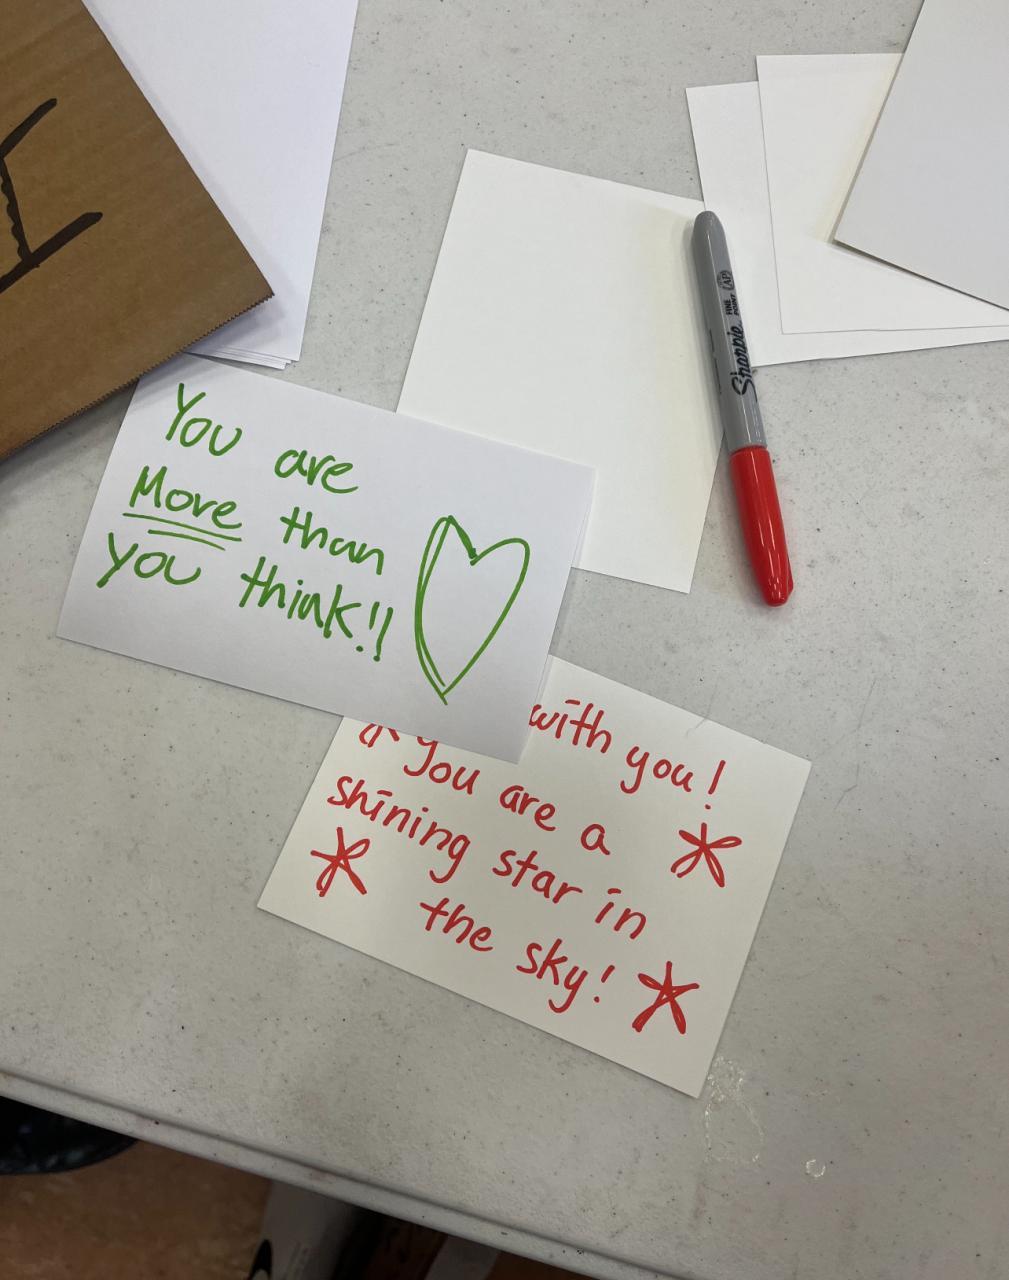 You are
More than
you think!!
with you!
You are a
shining star in
the sky!
Sharpie
FINE
POINT
AP